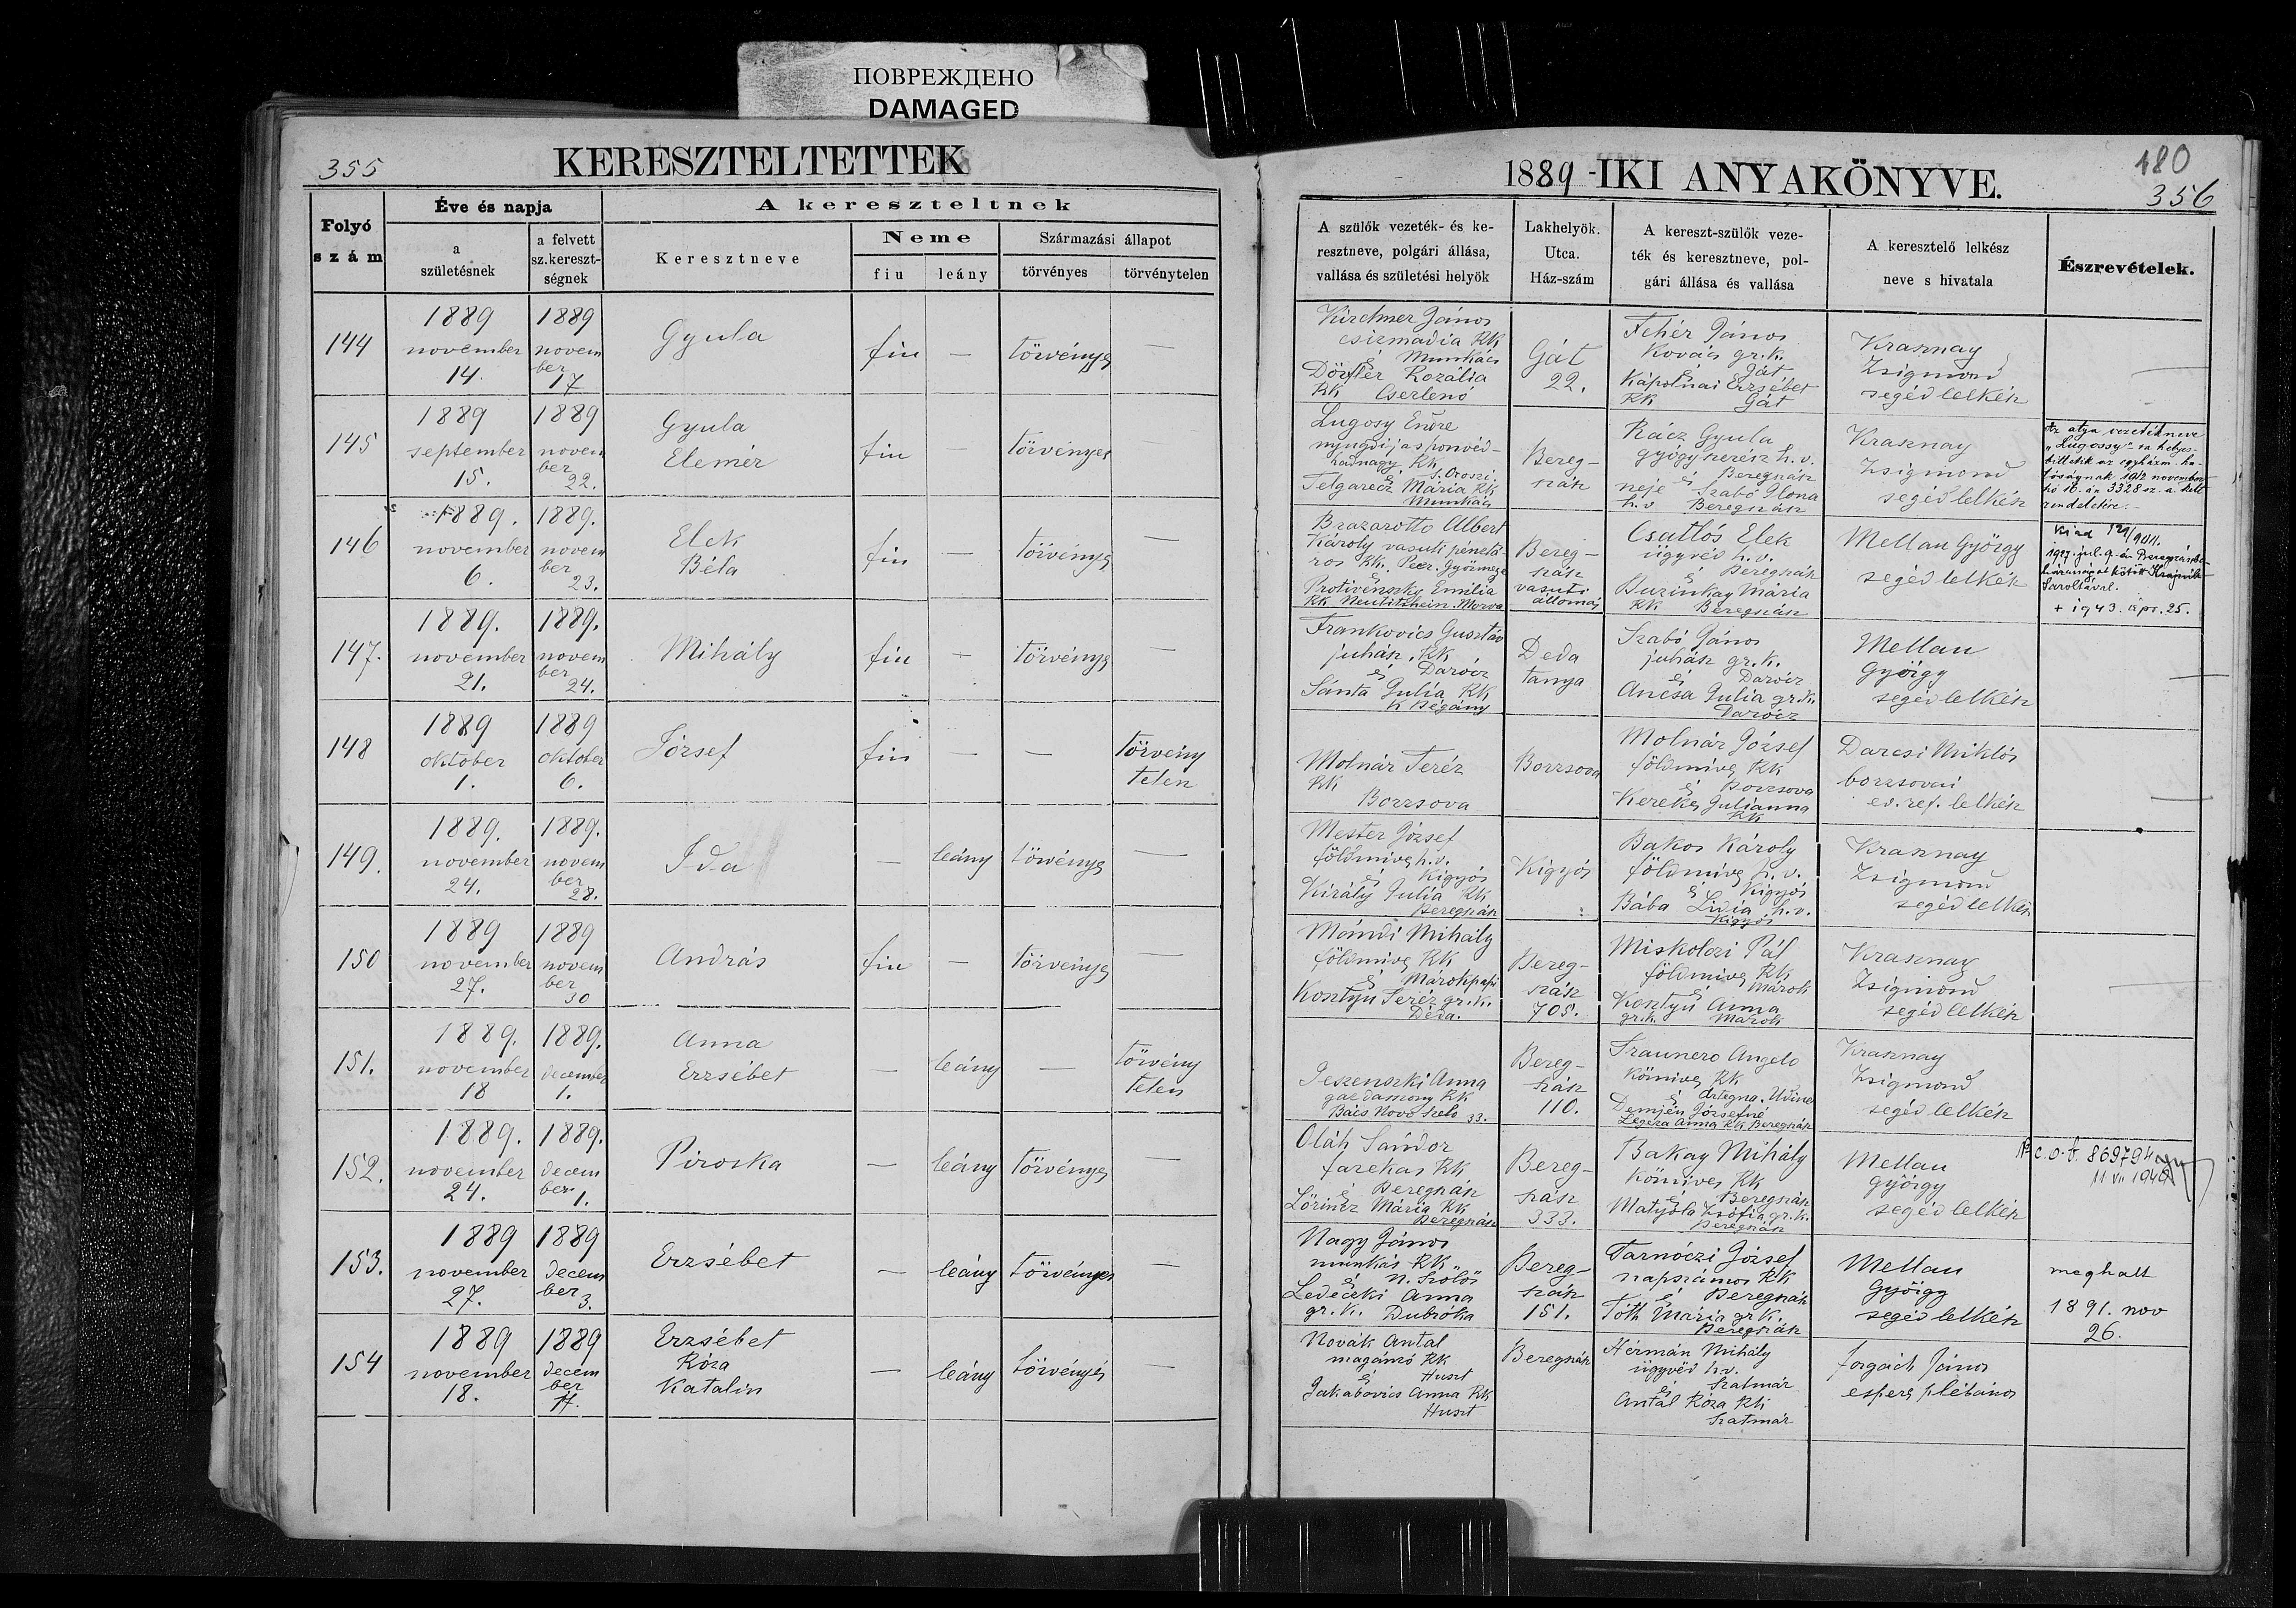 ПОВРЕЖДЕНО
DAMAGED
355
KERESZTELTETTEK
Folyó szám
Éve és napja
a születésnek
a felvett sz.kereszt-ségnek
A kereszteltnek
Keresztneve
Neme
fiu
leány
Származási állapot
törvényes
törvénytelen
1889 -IKI ANYAKÖNYVE.
180
356
A szülők vezeték- és ke-
resztneve, polgári állása,
vallása és születési helyök
Lakhelyök.
Utca.
Ház-szám
A kereszt-szülők veze-
ték és keresztneve, pol-
gári állása és vallása
A keresztelő lelkész
neve s hivatala
Észrevételek.
144
1889
november
14.
1889
novem
ber
17
Gyula
fiu
—
törvényes
—
Kirchner János
csizmadia RK
és Munkács
Dörfler Rozália
RK Cserlenó
Gát
22.
Fehér János
Kovács gr. k.
és Gát
Kápolnai Erzsébet
RK Gát
Krasznay
Zsigmond
segéd lelkész
—
145
1889
september
15.
1889
novem
ber
22.
Gyula
Elemér
fiu
—
törvényes
—
Lugosy Endre
nyugdijas honvéd-
hadnagy RK
és T. Oroszi.
Telgarecz Mária RK
Munkács
Bereg-
szász
Rácz Gyula
gyógyszerész h. v.
Beregszász
neje Szabó Ilona
h. v Beregszász
Krasznay
Zsigmond
segéd lelkész
Az atya vezetékneve
„Lugossy"-ra helyes-
bittetik az egyházm. ha-
tóságnak 1912 november
hó 16-án 3328 sz. a. kelt
rendeletére.-
146
1889.
november
6.
1889.
novem
ber
23.
Elek
Béla
fiu
—
törvényes
—
Brazarotto Albert
Károly vasuti pénztá-
ros RK.
és
Emilia
RK Neutitshein. Morva
Bereg-
szász
vasuti
állomás
Csatlós Elek
ügyvéd h. v.
és Beregszász
Buzinkay Mária
RK Beregszász
Mellau György
segéd lelkész
Kiad 121/911.
1917. jul. 9-én
Saroltával.
+ 1943. ápr. 25.
147.
1889.
november
21.
1889.
novem
ber
24.
Mihály
fiu
—
törvényes
—
Frankovics Gusztáv
juhász, RK
és Darócz
Sánta Julia RK
K Bégány
Deda
tanya
Szabó János
juhász gr. k.
és Darócz
Ancsa Julia gr. k.
Darócz
Mellau
György
segéd lelkész
—
148
1889
oktober
1.
1889
oktober
6.
József
fiu
—
—
törvény
telen
Molnár Teréz
RK
Borzsova
Borzsova
Molnár József
földmives RK
és Borzsova
Kerekes Julianna
RK
Darcsi Miklós
borzsovai
ev. ref. lelkész
—
149.
1889.
november
24.
1889.
novem
ber
28.
Ida
—
leány
törvényes
—
Mester József
földmives h. v.
és Kigyós
Király Julia RK
Beregszász
Kigyós
Bakos Károly
földmives h. v.
és Kigyós
Bába Lidia h. v.
Kigyós
Krasznay
Zsigmond
segéd lelkész
150
1889
november
27.
1889
novem
ber
30
András
fiu
—
törvényes
—
Mándi Mihály
földmives RK
és Márokpapi
Kosztyu Teréz gr. k.
Déda.
Bereg-
szász
705.
Miskolczi Pál
földmives RK
és Márok
Kosztyu Anna
gr. k. Márok
Krasznay
Zsigmond
segéd lelkész
—
151.
1889.
november
18
1889.
december
1.
Anna
Erzsébet
—
leány
—
törvény
telen
Jeszenszki Anna
gazdasszony RK
Bács Novo Szelo 33.
Bereg-
szász
110.
Traunero Angelo
kömives RK
és Artegna. Udine
Demjén Józsefné
Legeza Anna RK Beregszász
Krasznay
Zsigmond
segéd lelkész
152.
1889.
november
24.
1889.
decem
ber
1.
Piroska
—
leány
törvényes
—
Oláh Sándor
fazekas RK
és Beregszász
Lörincz Mária RK
Beregszász
Bereg-
szász
333.
Bakay Mihály
kömives RK
és Beregszász
Zsófia gr. k.
Beregszász
Mellau
György
segéd lelkész
№ c. o. t. 869794
11. VI. 1940
153.
1889
november
27.
1889
decem
ber
3.
Erzsébet
—
leány
törvényes
—
Nagy János
munkás RK
és N. Szőlős
Ledeczki Anna
gr. k. Dubróka
Bereg-
szász
151.
Tarnóczi József
napszámos RK
és Beregszász
Tóth Mária gr. k.
Beregszász
Mellau
György
segéd lelkész
meghalt
1891. nov
26.
154
1889
november
18.
1889
decem
ber
Erzsébet
Róza
Katalin
—
leány
törvényes
—
Novák Antal
magánzó RK
és Huszt
Jakabovics Anna RK
Huszt
Beregszász
Hermán Mihály
ügyvéd h. v.
és Szatmár
Antal Róza RK
Szatmár
forgách János
esperes plébános